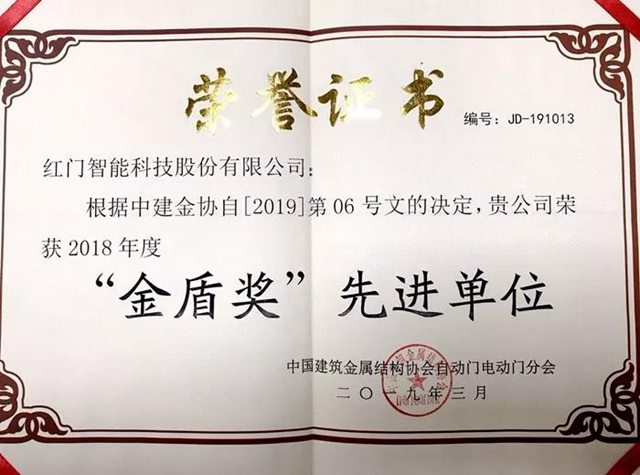 荣誉证书
编号：JD-191013
红门智能科技股份有限公司：
根据中建金协自[2019]第 06 号文的决定，贵公司荣
获 2018 年度
“金盾奖”先进单位
中国建筑金属结构协会自动门电动门分会
二〇一九年三月